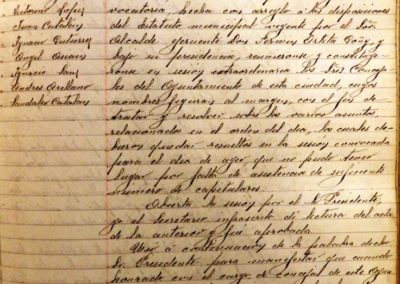 Victorino López
Juan Catalán
Ignacio Gutierrez
Angel
Ignacio Sanz
Andres Arellano
Catalan
vocatoria hecha con arreglo a las disposiciones
del Estatuto municipal vigente por el Señor
Alcalde gerente Don Fermin
bajo su presidencia, reunieronse y constituye-
ronse en sesion extraordinaria los Srs Conceja-
les del Ayuntamiento de esta ciudad, cuyos
nombres figuran al margen, con el fin de
tratar y resolver sobre los varios asuntos
relacionados en el orden del dia, los cuales de-
bieron quedar resueltos en la sesion convocada
para el dia de ayer que no pudo tener
lugar por falta de asistencia de suficiente
número de capitulares.
Abierta la sesion por el Sr. Presidente,
yo el Secretario infrascrito di lectura del acta
de la anterior y fué aprobada.
Usó a continuacion de la palabra dicho
Sr. Presidente para manifestar que cuando
honrado con el cargo de concejal de este Ayun